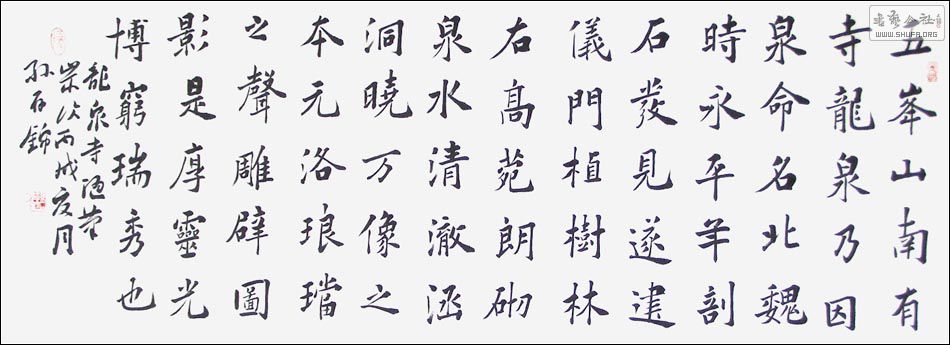 五峯山南有
寺龍泉乃因
泉命名北魏
時永平年剖
石發見遂建
儀門植樹林
右髙苑朗砌
泉水清澈涵
洞曉万像之
本元洛琅璫
之聲雕辟圖
影是厚靈光
博窮瑞秀也
龍泉寺
歲次丙戌夏月
孫錦
書藝公社
WWW.SHUFA.ORG